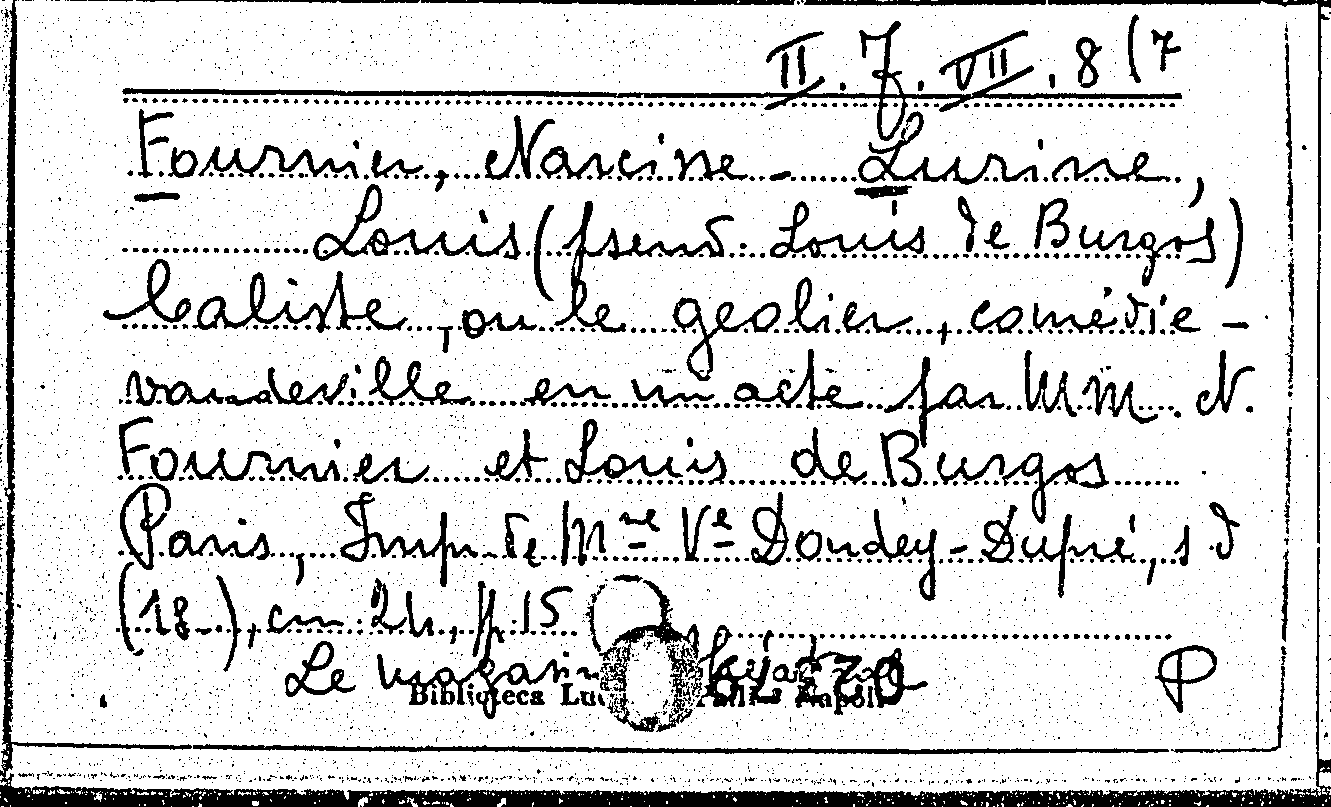 II. F. VII. 8 (7
Fournier, Narcisse - Lurine,
Louis (pseud. Louis de Burgos)
Caliste, ou le geolier, comédie-
vaudeville en un acte par MM. N.
Fournier et Louis de Burgos
Paris, Imp. de Mme Ve Dondey-Dupré, s d
(18_), cm 24, p. 15
Le magasin théâtral P
Biblioteca Lucchesi Palli - Napoli